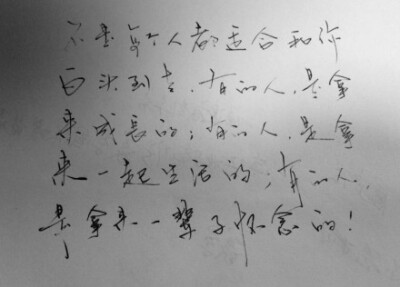 不是每个人都适合和你
白头到老,有的人,是拿
来成長的;有的人,是拿
来一起生活的;有的人,
是拿来一辈子怀念的!